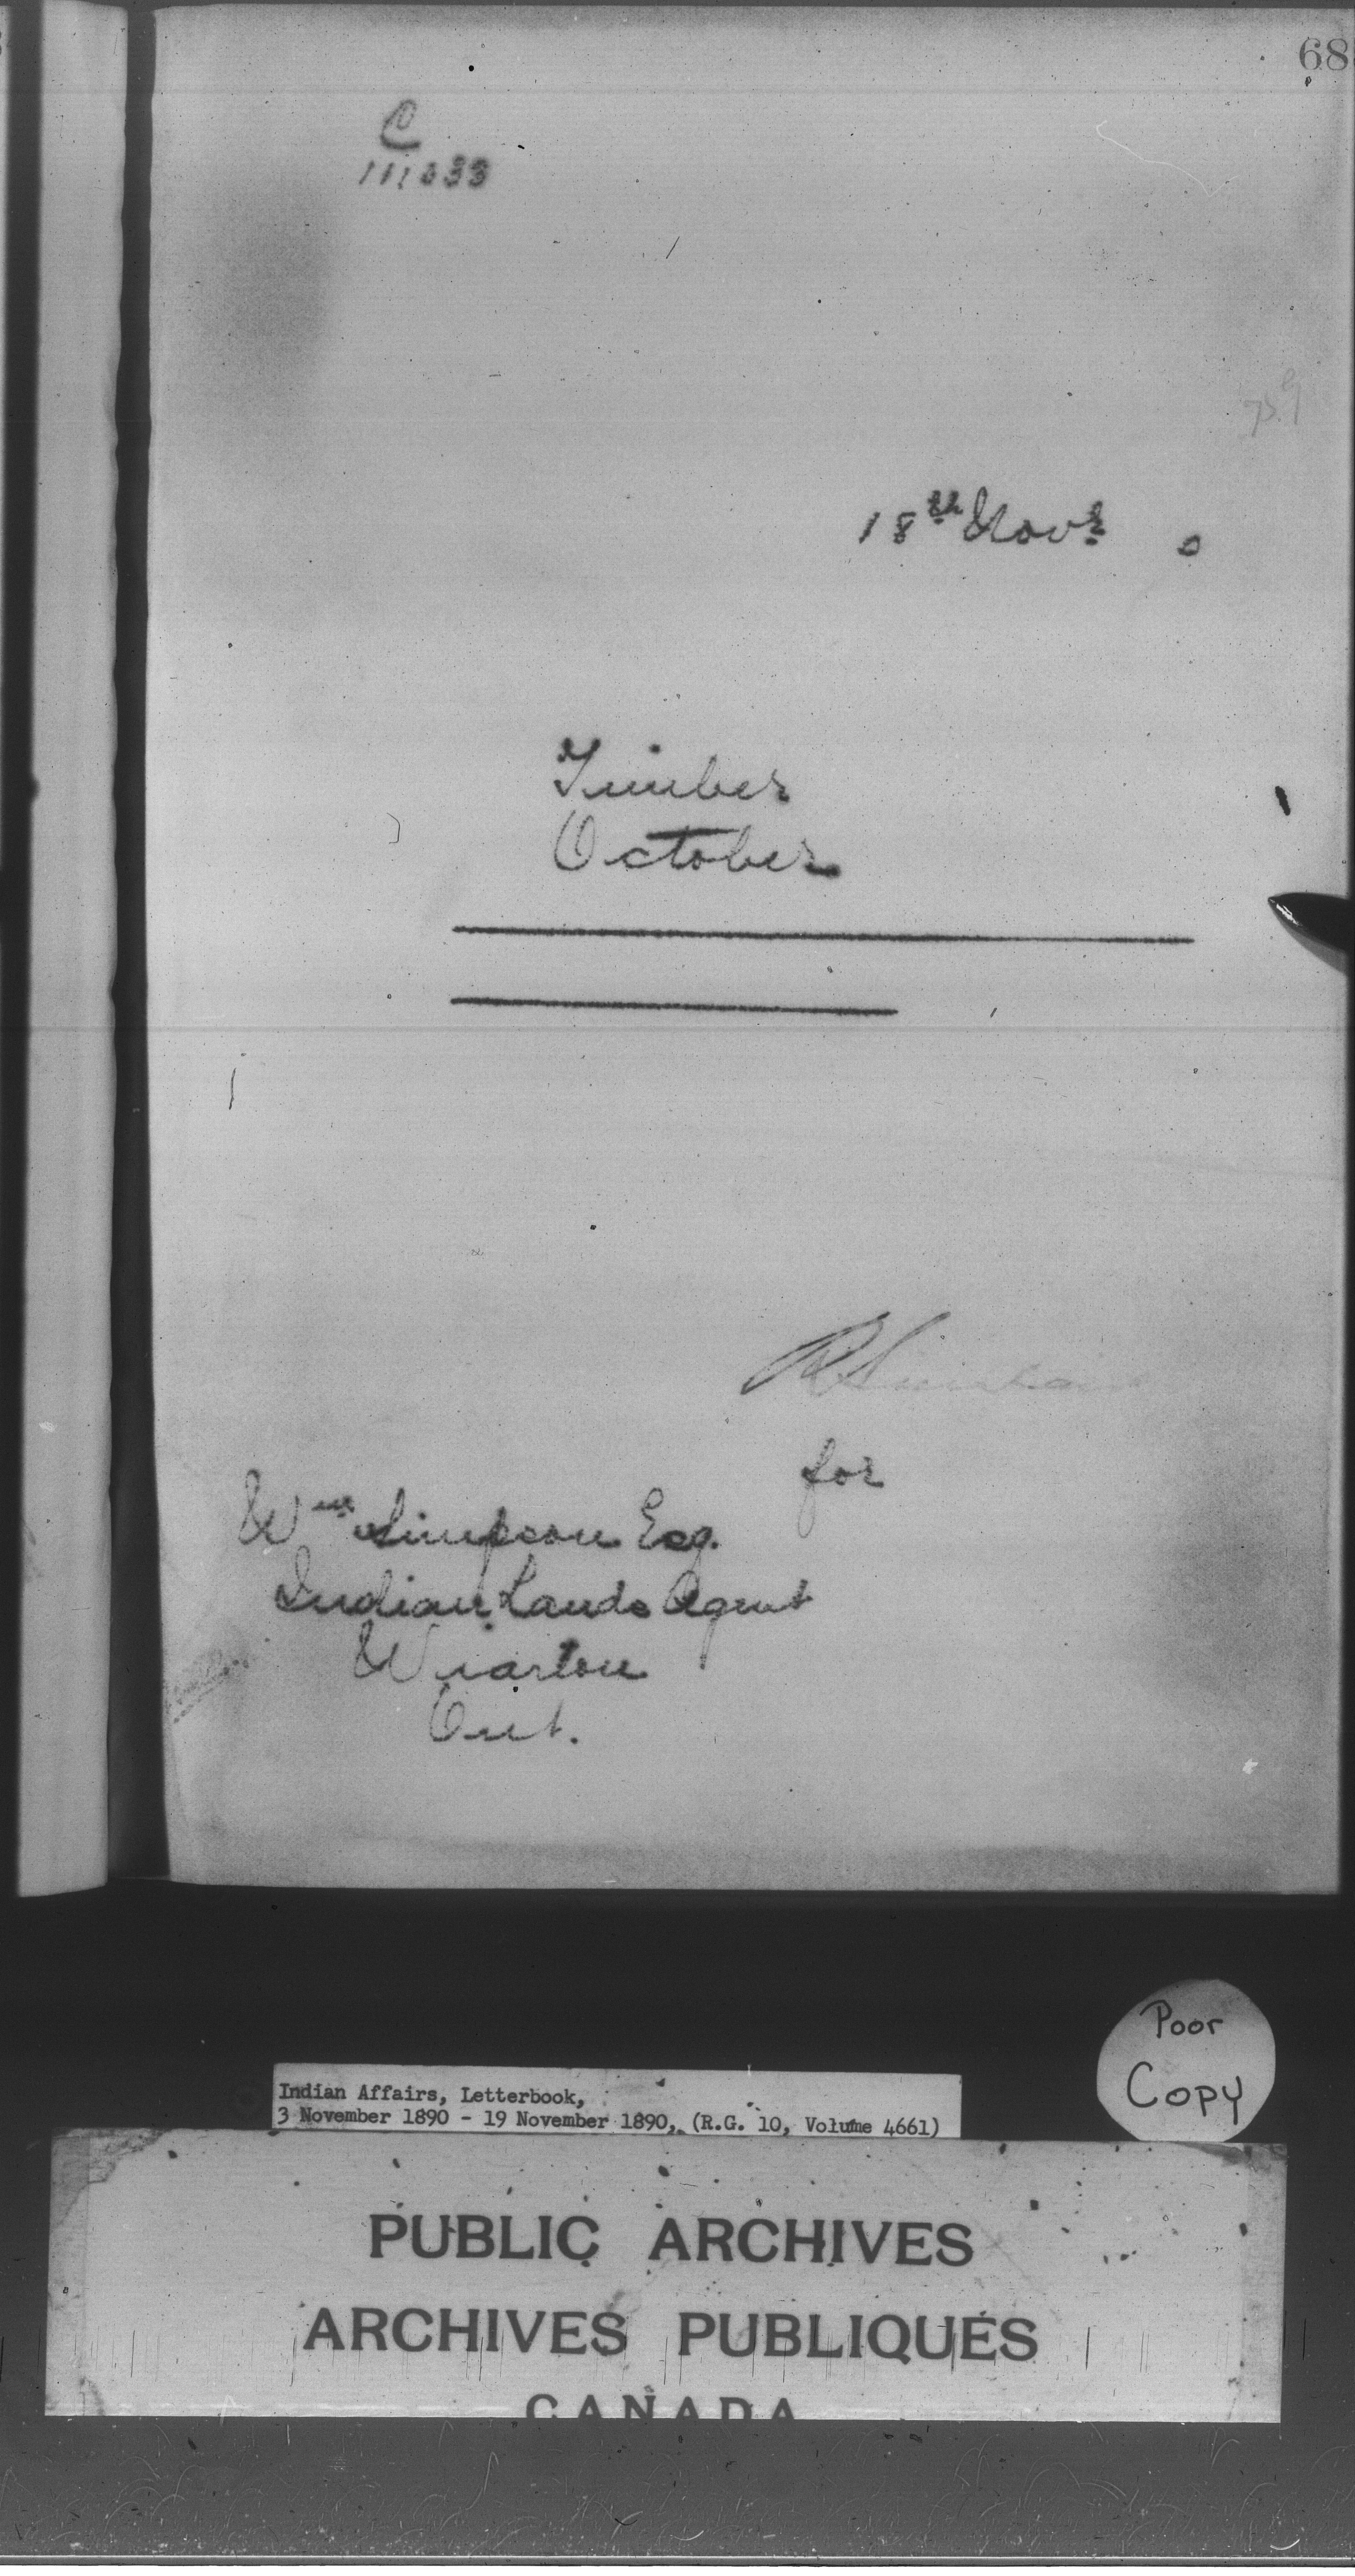 68
C
111033
18th Novr 0
Timber
October
for
Wm Simpson Esq.
Indian Lands Agent
Wiarton
Ont.
Poor
Copy
Indian Affairs, Letterbook,
3 November 1890 - 19 November 1890, (R.G. 10, Volume 4661)
PUBLIC ARCHIVES
ARCHIVES PUBLIQUES
CANADA